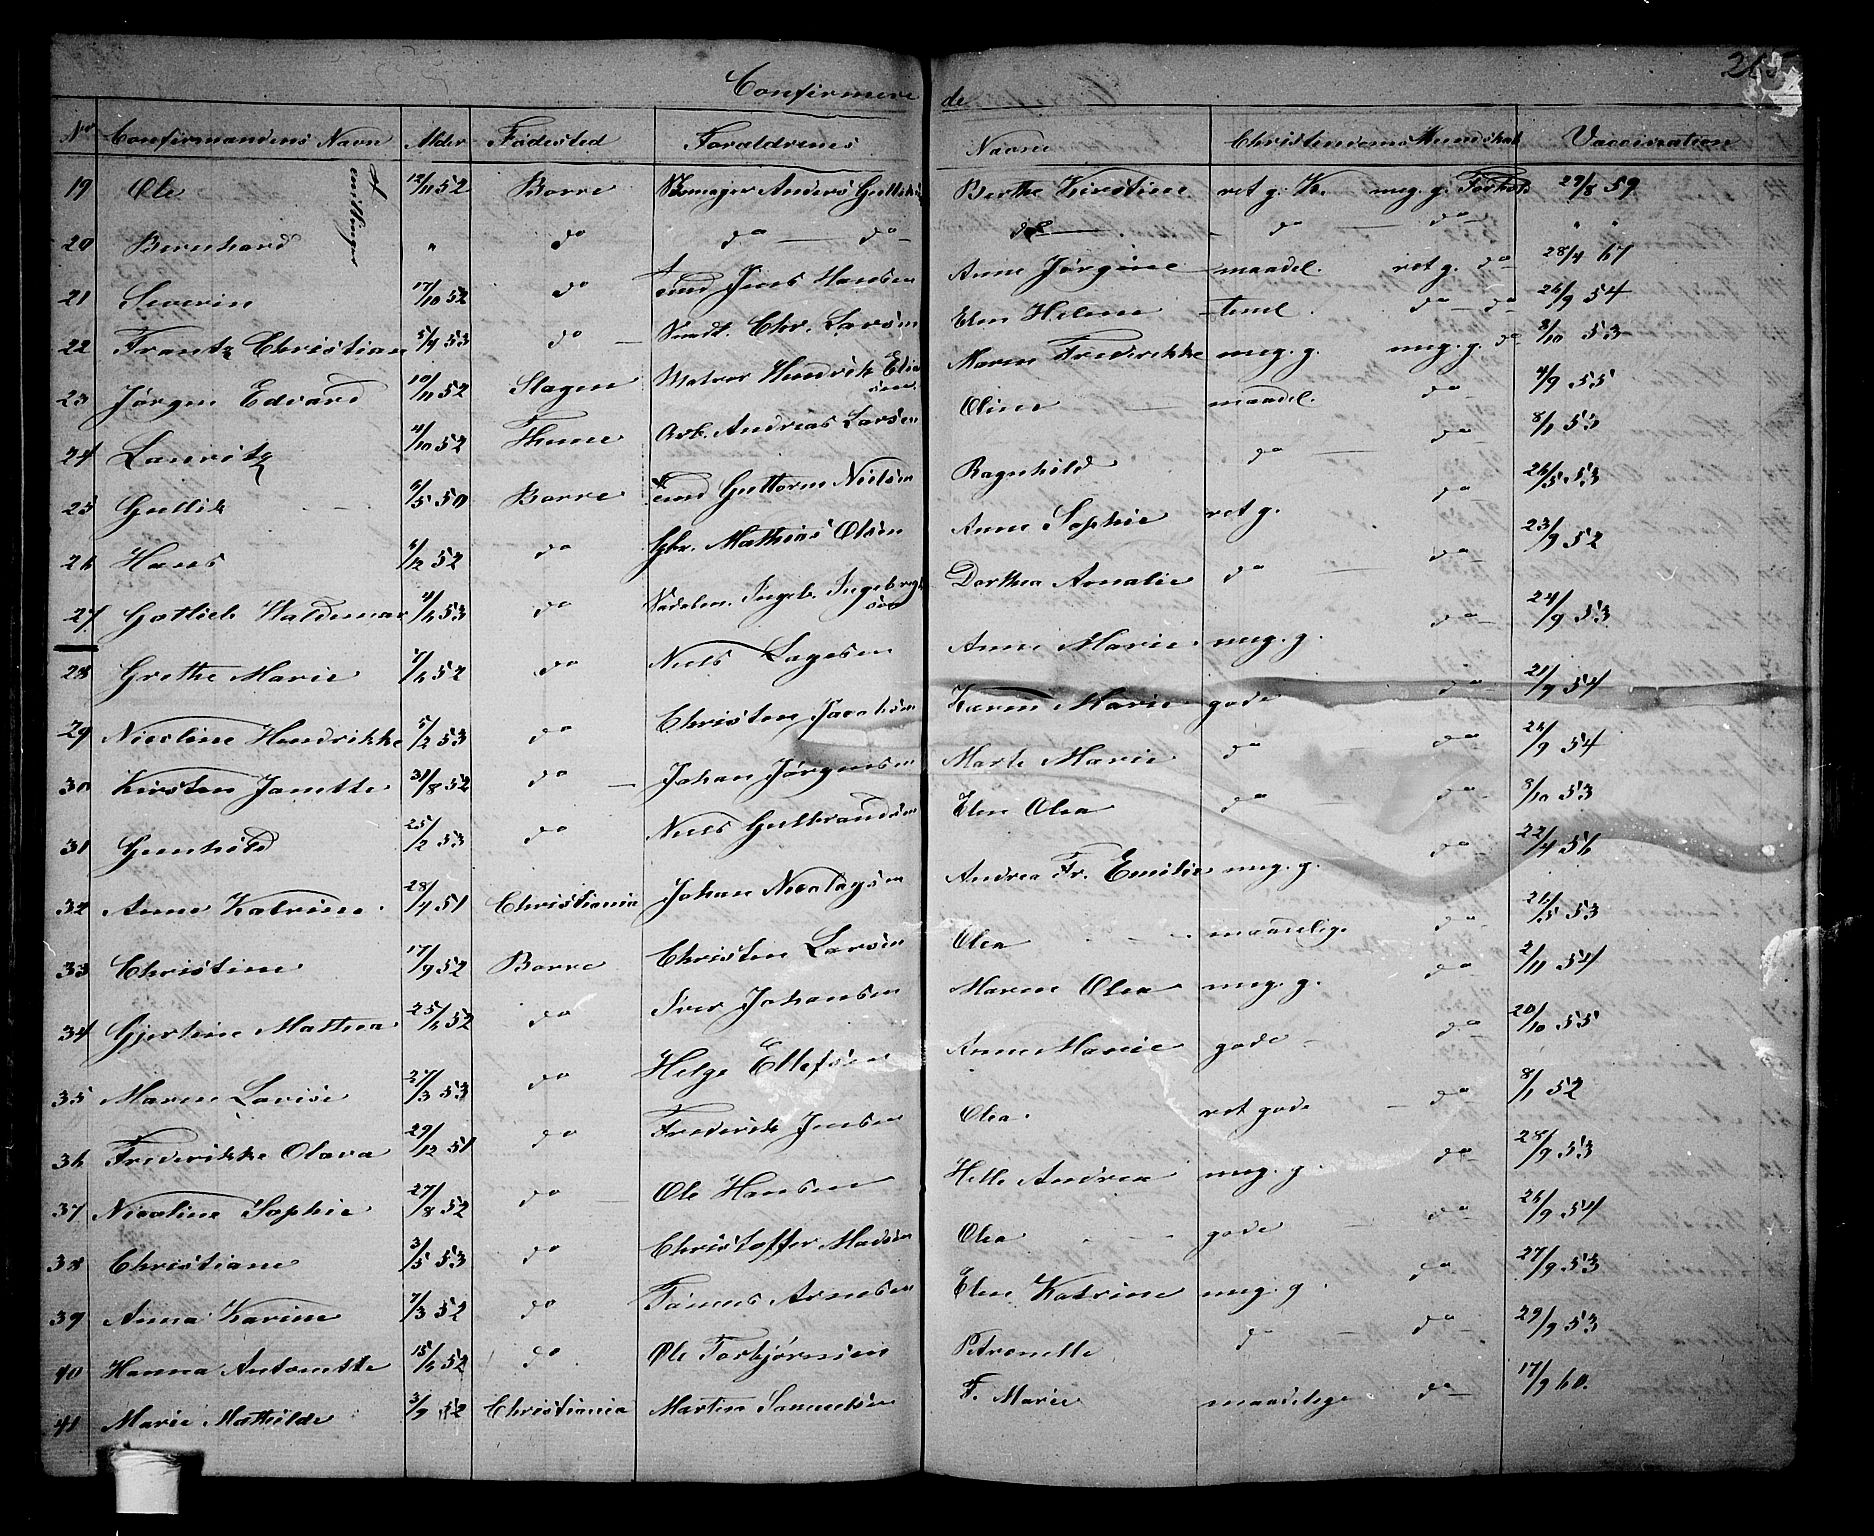 Confirmere de
No Confirmandens Navn Alder Fødested Forældrenes Navne Christendoms Kundskab Vaccination
19 Ole 12/11 52 Borre Anders Berthe Kirstine ret g. K. meg. g. Forhold 29/8 59
Tvillinger
20 Bernhard " do do — do do do do " "
21 Severin 17/10 52 do Jens Hansen Anne Jørgine maadel. ret g. do 28/4 67
22 Frantz Christian 5/4 53 do Chr. Larsen Elen Helene teml. do do 26/9 54
23 Jørgen Edvard 10/11 52 Slagen Hendrik Elia sen Maren Frederikke meg. g. meg. g. do 3/10 53
24 Lauritz 4/10 52 Thune Arb. Andreas Larsen Oline maadel. do 4/9 55
25 Gullik 6/5 50 Borre Guttorm Nielsen Ragnhild do do 8/1 53
26 Hans 6/12 52 do Gbr. Mathias Olsen Anne Sophie ret g. do 26/5 53
27 Gotlieb Waldemar 4/1 53 do Ingeb. Ingebregt sen Dorthea Amalie do do 23/9 52
28 Grethe Marie 4/6 52 do Niels Lagesen Anne Marie meg. g. do 24/9 53
29 Nicoline Hendrikke 5/2 53 do Christen Jacobsen Karen Marie gode do 21/9 54
30 Kirsten Janette 31/8 52 do Johan Jørgensen Marte Marie do do 26/9 54
31 Gunhild 25/2 53 do Niels Gulbrandsen Elen Olea do do 8/10 53
32 Anne Katrine 28/4 51 Christiania Johan Nicolaysen Andrea Fr. Emilie meg. g. do 22/4 56
33 Christine 17/9 52 Borre Christen Larsen Olea maadelige do 26/5 53
34 Gjertine Mathea 25/6 52 do Iver Johansen Maren Olea meg. g. do 2/11 54
35 Maren Lovise 27/3 53 do Helge Ellefsen Anne Marie gode do 20/10 55
36 Frederikke Olava 29/12 51 do Frederik Jensen Olea ret gode do 8/1 52
37 Nicoline Sophie 27/8 52 do Ole Hansen Helle Andrea meg. g. do 28/9 53
38 Christiane 3/5 53 do Christoffer Madsen Olea gode do 26/9 54
39 Anna Karine 7/3 52 do Tønnes Arnesen Elen Katrine meg. g. do 27/9 53
40 Hanna Antonette 15/6 52 do Ole Torbjørnsen Petronelle do do 29/9 53
41 Marie Mathilde 3/9 52 Christiania Martin Samuelsen F. Marie maadelige do 17/9 60.